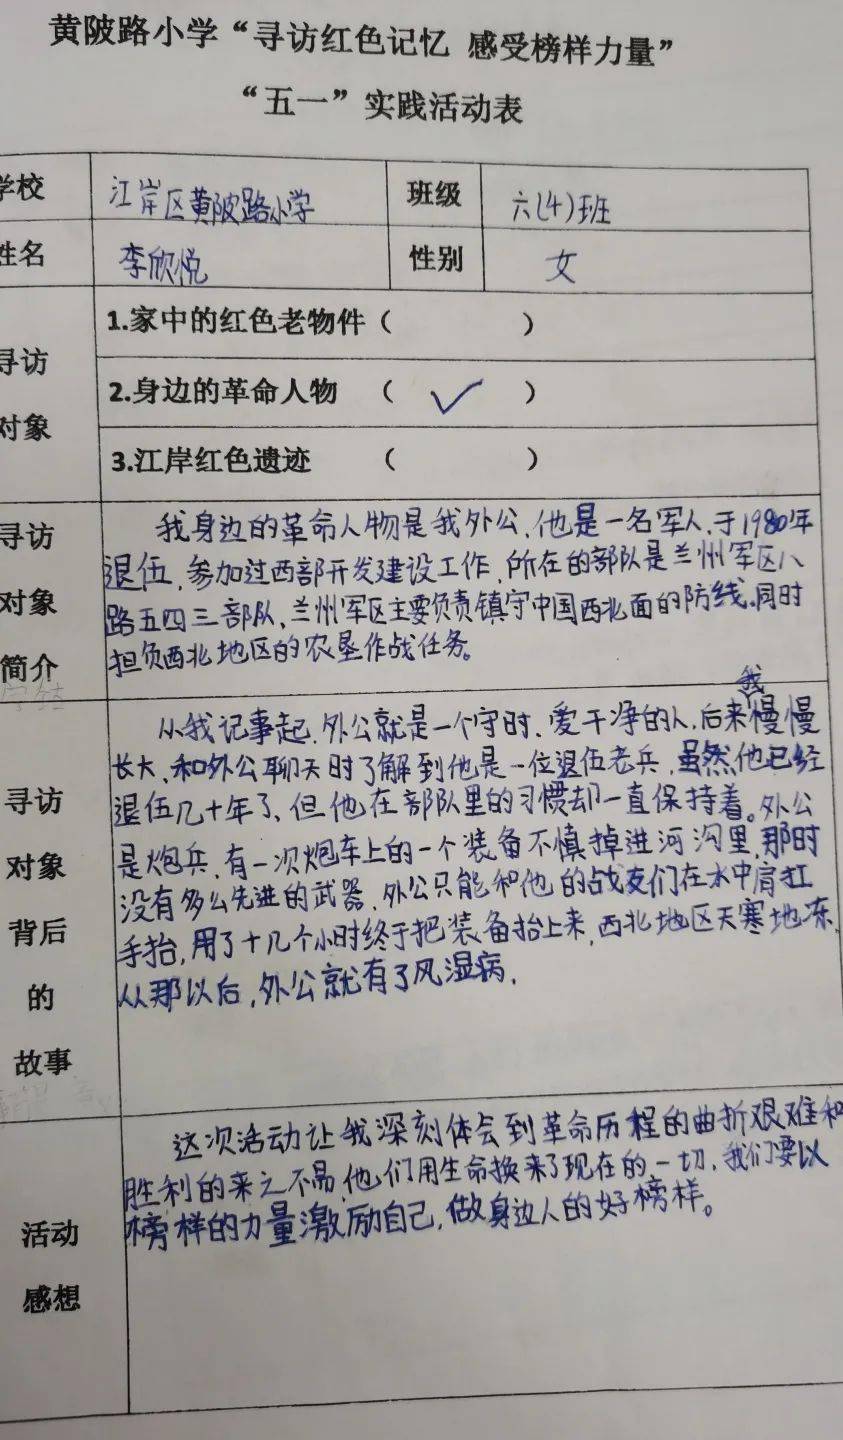 黄陂路小学“寻访红色记忆 感受榜样力量”
“五一”实践活动表
学校 江岸区黄陂路小学 班级 六(4)班
姓名 李欣悦 性别 女
寻访
对象
1.家中的红色老物件（ ）
2.身边的革命人物 （ ✓ ）
3.江岸红色遗迹 （ ）
寻访
对象
简介
我身边的革命人物是我外公,他是一名军人,于1980年
退伍,参加过西部开发建设工作,所在的部队是兰州军区八
路五四三部队,兰州军区主要负责镇守中国西北面的防线.同时
担负西北地区的农垦作战任务。
寻访
对象
背后
的
故事
从我记事起,外公就是一个守时、爱干净的人,后来我慢慢
长大,和外公聊天时了解到他是一位退伍老兵,虽然他已经
退伍几十年了,但他在部队里的习惯却一直保持着。外公
是炮兵,有一次炮车上的一个装备不慎掉进河沟里,那时
没有多么先进的武器,外公只能和他的战友们在水中肩扛
手抬,用了十几个小时终于把装备抬上来,西北地区天寒地冻,
从那以后,外公就有了风湿病,
活动
感想
这次活动让我深刻体会到革命历程的曲折艰难和
胜利的来之不易,他们用生命换来了现在的一切,我们要以
榜样的力量激励自己,做身边人的好榜样。